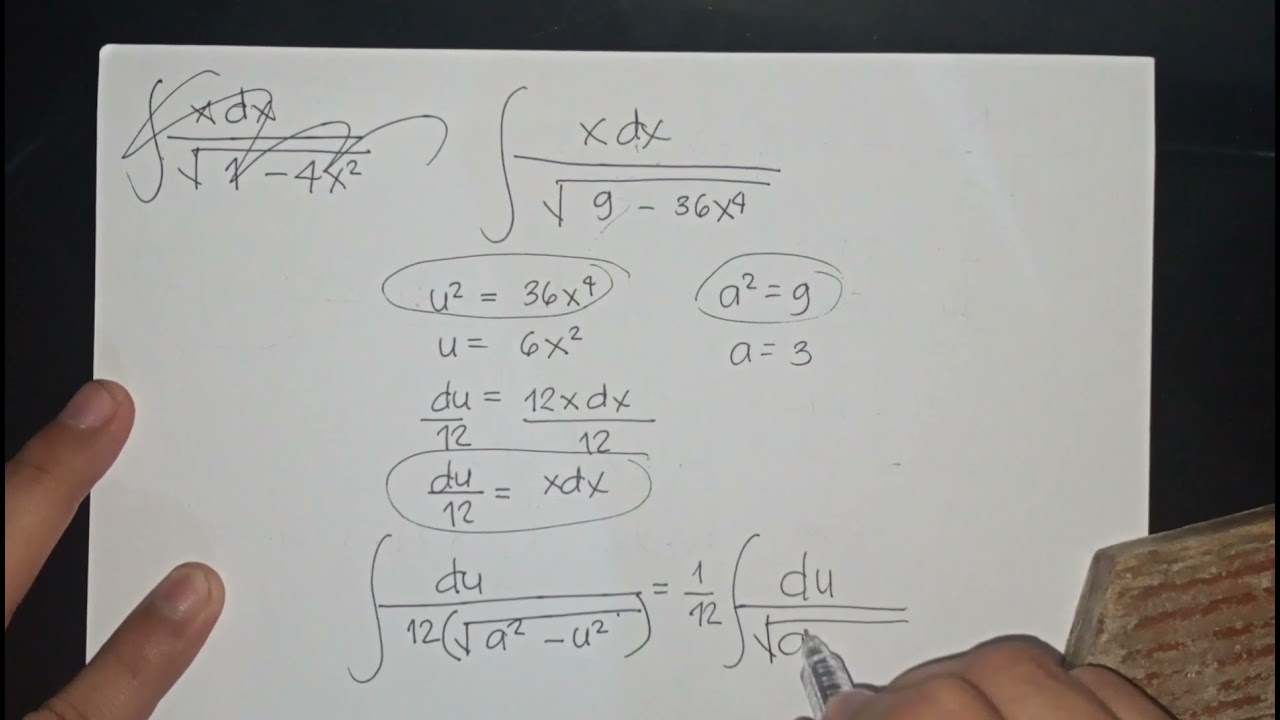 ∫ x dx / √(1 - 4x²)
∫ x dx / √(9 - 36x⁴)
u² = 36x⁴
a² = 9
u = 6x²
a = 3
du/12 = 12x dx/12
du/12 = x dx
∫ du / 12(√(a² - u²)) = 1/12 ∫ du / √a